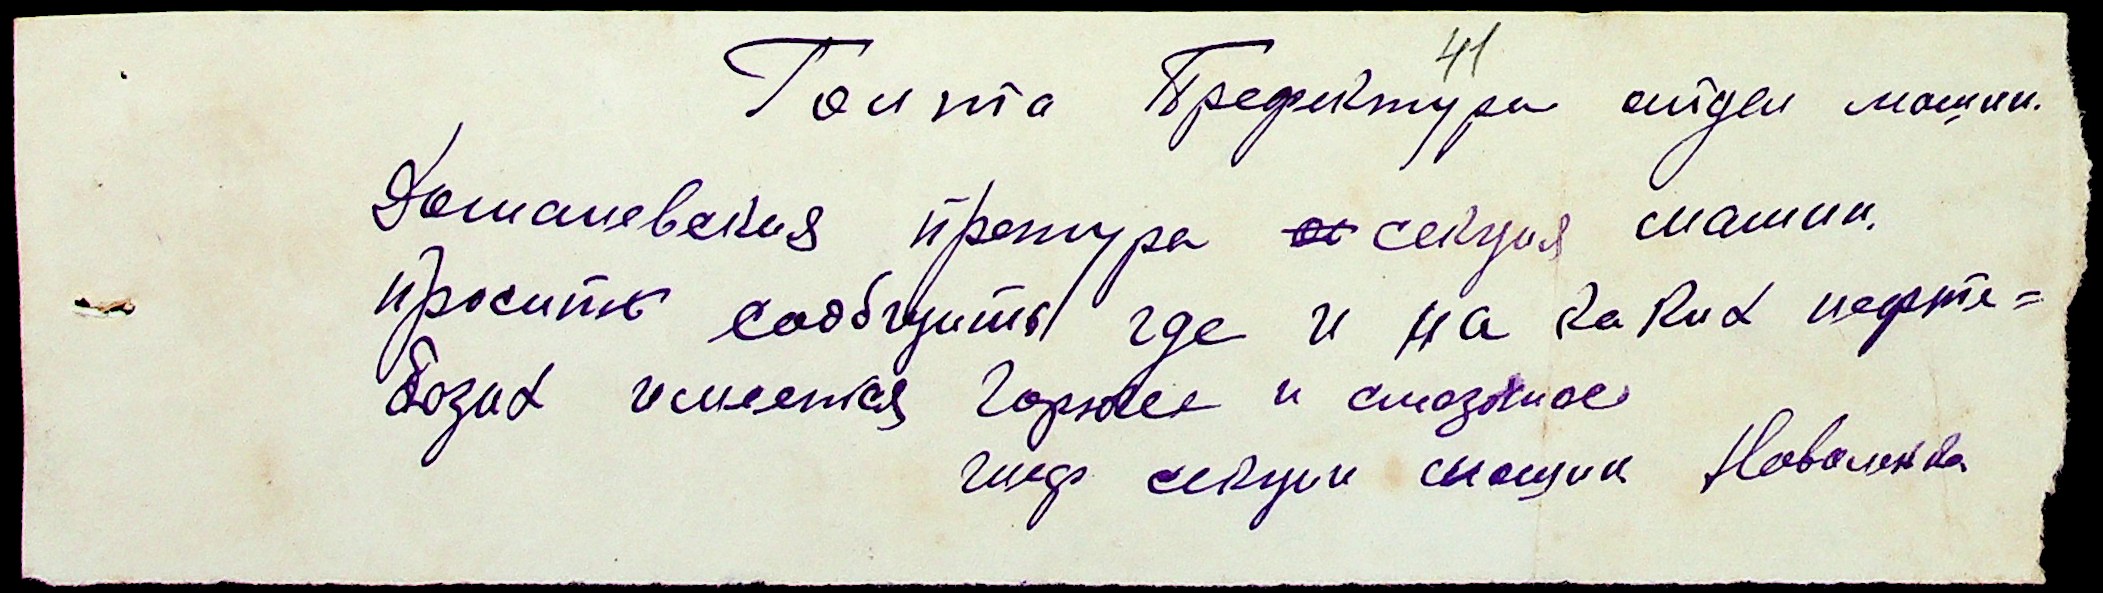 41
Голта Префектура отдел машин.
Доманевская претура секция машин.
просить сообщить где и на каких нефте=
базах имеется горючее и смазочное
шеф секции машин